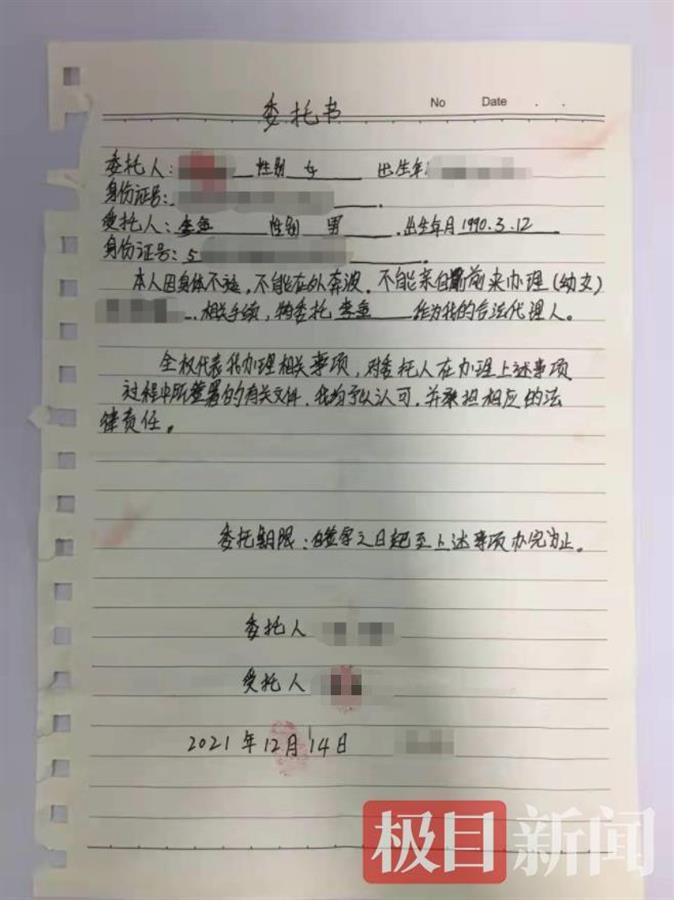 No Date . .
委托书
委托人: 性别 女 出生年
身份证号: .
受托人: 李金 性别 男 .出生年月 1990.3.12
身份证号:5 .
本人因身体不适,不能在外奔波,不能亲自前来办理(幼女)
.相关手续,特委托 李金 作为我的合法代理人。
全权代表我办理相关事项,对委托人在办理上述事项
过程中所签署的有关文件,我均予以认可,并承担相应的法
律责任。
委托期限:自签字之日起至上述事项办完为止。
委托人
受托人
2021年12月14日
极目新闻